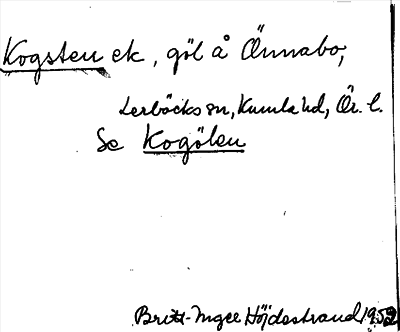 Kogsten ek, göl å Önnabo,
Lerbäcks sn, Kumla hd, Ör. l.
Se Kogölen
Britt-Inger Höjdestrand 1952